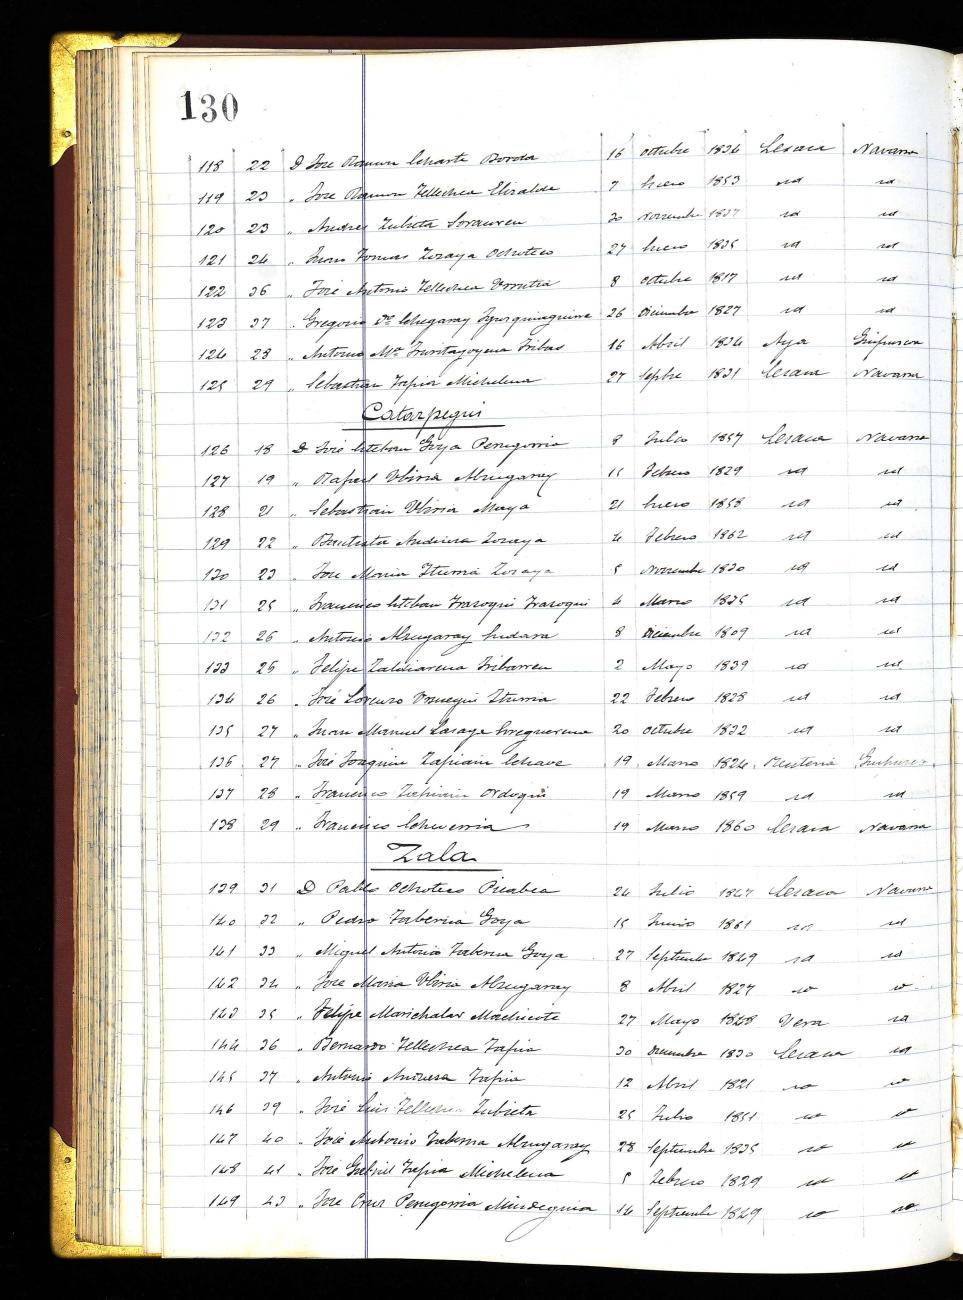 130
118 22 D José Ramon Echarte Borda 16 octubre 1836 Lesaca Navarra
119 23 " José Ramon Tellechea Elizalde 7 Enero 1853 id id
120 23 " Andres Zubieta Sorauren 30 Noviembre 1837 id id
121 24 " Juan Tomas Zozaya Ochoteco 27 Enero 1835 id id
122 36 " José Antonio Tellechea Urrutia 8 octubre 1817 id id
123 37 " Gregorio Echegaray 26 Diciembre 1827 id id
124 28 " Antonio Mª Iribas 16 Abril 1834 Aya Guipuzcoa
125 29 " Sebastian Tapia Michelena 27 Sepbre 1831 Lesaca Navarra
Catarpegui
126 18 D José Esteban Goya Perugorria 8 Julio 1857 Lesaca Navarra
127 19 " Rafael Ubiria Alzugaray 15 Febrero 1829 id id
128 21 " Sebastian Ubiria Maya 21 Enero 1858 id id
129 22 " Bautista Andueza Zozaya 4 Febrero 1862 id id
130 23 " José Maria Iturria Zozaya 5 Noviembre 1830 id id
131 25 " Francisco Esteban Irazoqui Irazoqui 4 Marzo 1835 id id
132 26 " Antonio Alzugaray Endara 8 Diciembre 1809 id id
133 25 " Felipe Iribarren 2 Mayo 1839 id id
134 26 " José Lorenzo Iturria 22 Febrero 1828 id id
135 27 " Juan Manuel 20 octubre 1832 id id
136 27 " José Joaquin Tapiain Echave 19 Marzo 1824 Renteria Guipuzcoa
137 28 " Francisco Tapiain Ordoqui 19 Marzo 1859 id id
138 29 " Francisco Echeverria 19 Marzo 1860 Lesaca Navarra
Zala
139 31 D Pablo Ochoteco Picabea 24 Julio 1847 Lesaca Navarra
140 32 " Pedro Taberna Goya 15 Junio 1861 id id
141 33 " Miguel Antonio Taberna Goya 27 Septiembre 1849 id id
142 34 " José Maria Ubiria Alzugaray 8 Abril 1827 id id
143 35 " Felipe Marichalar Machicote 27 Mayo 1848 Vera id
144 36 " Bernardo Tellechea Tapia 30 Diciembre 1830 Lesaca id
145 37 " Antonio Andueza Tapia 12 Abril 1821 id id
146 39 " José Luis Tellechea Zubieta 25 Julio 1851 id id
147 40 " José Antonio Taberna Alzugaray 28 Septiembre 1835 id id
148 41 " José Gabriel Tapia Michelena 5 Febrero 1829 id id
149 43 " José Cruz Perugorria Mindeguia 14 Septiembre 1849 id id